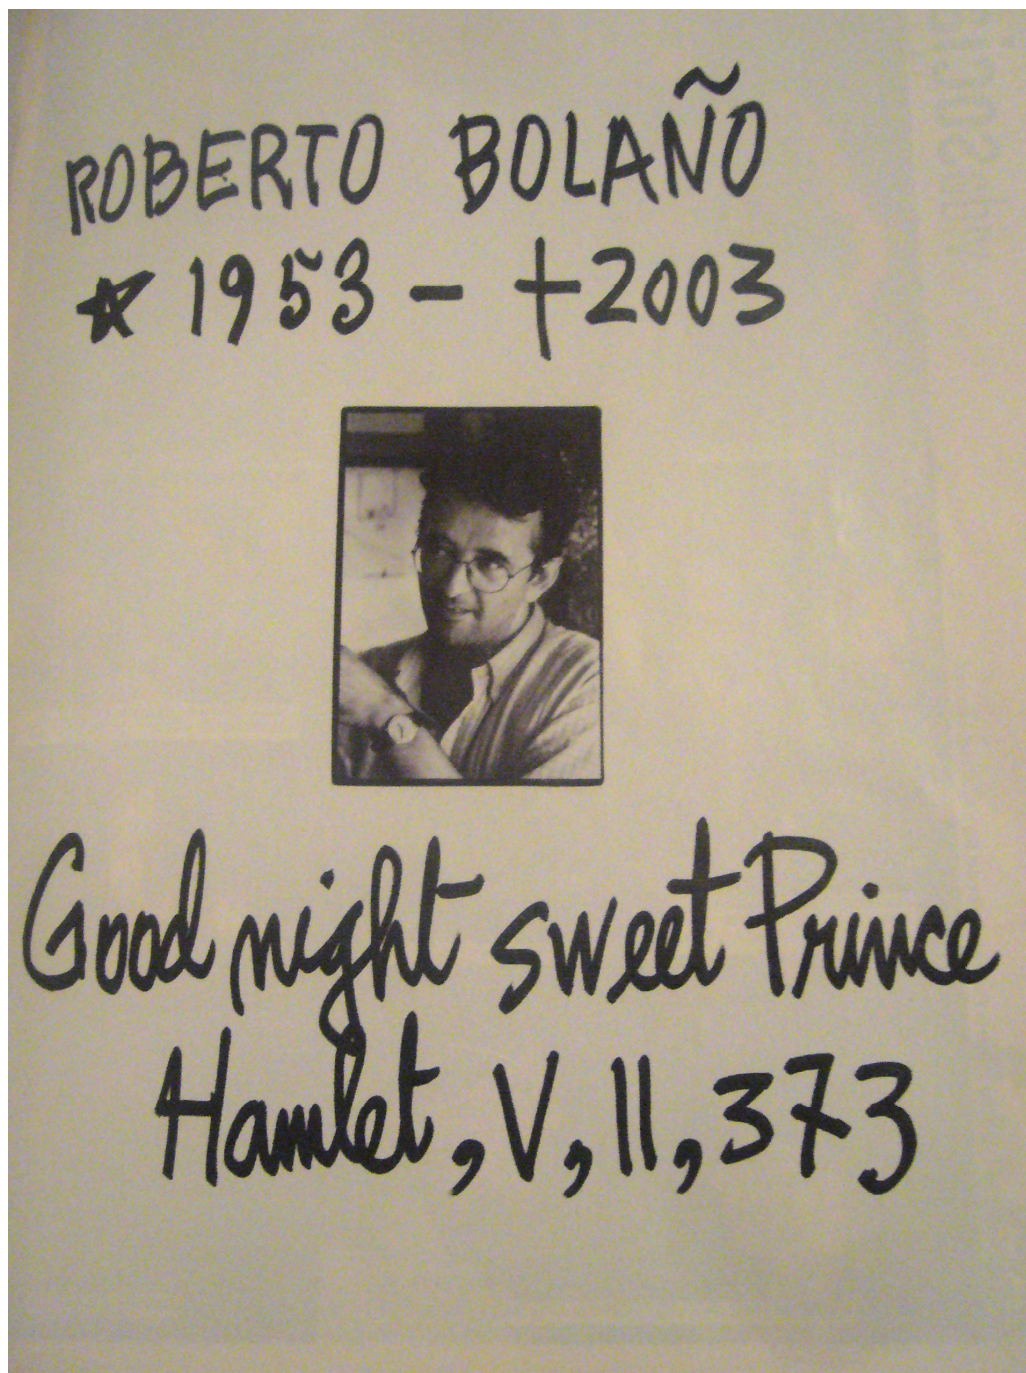 ROBERTO BOLAÑO
☆ 1953 - †2003
Good night sweet Prince
Hamlet, V, II, 373